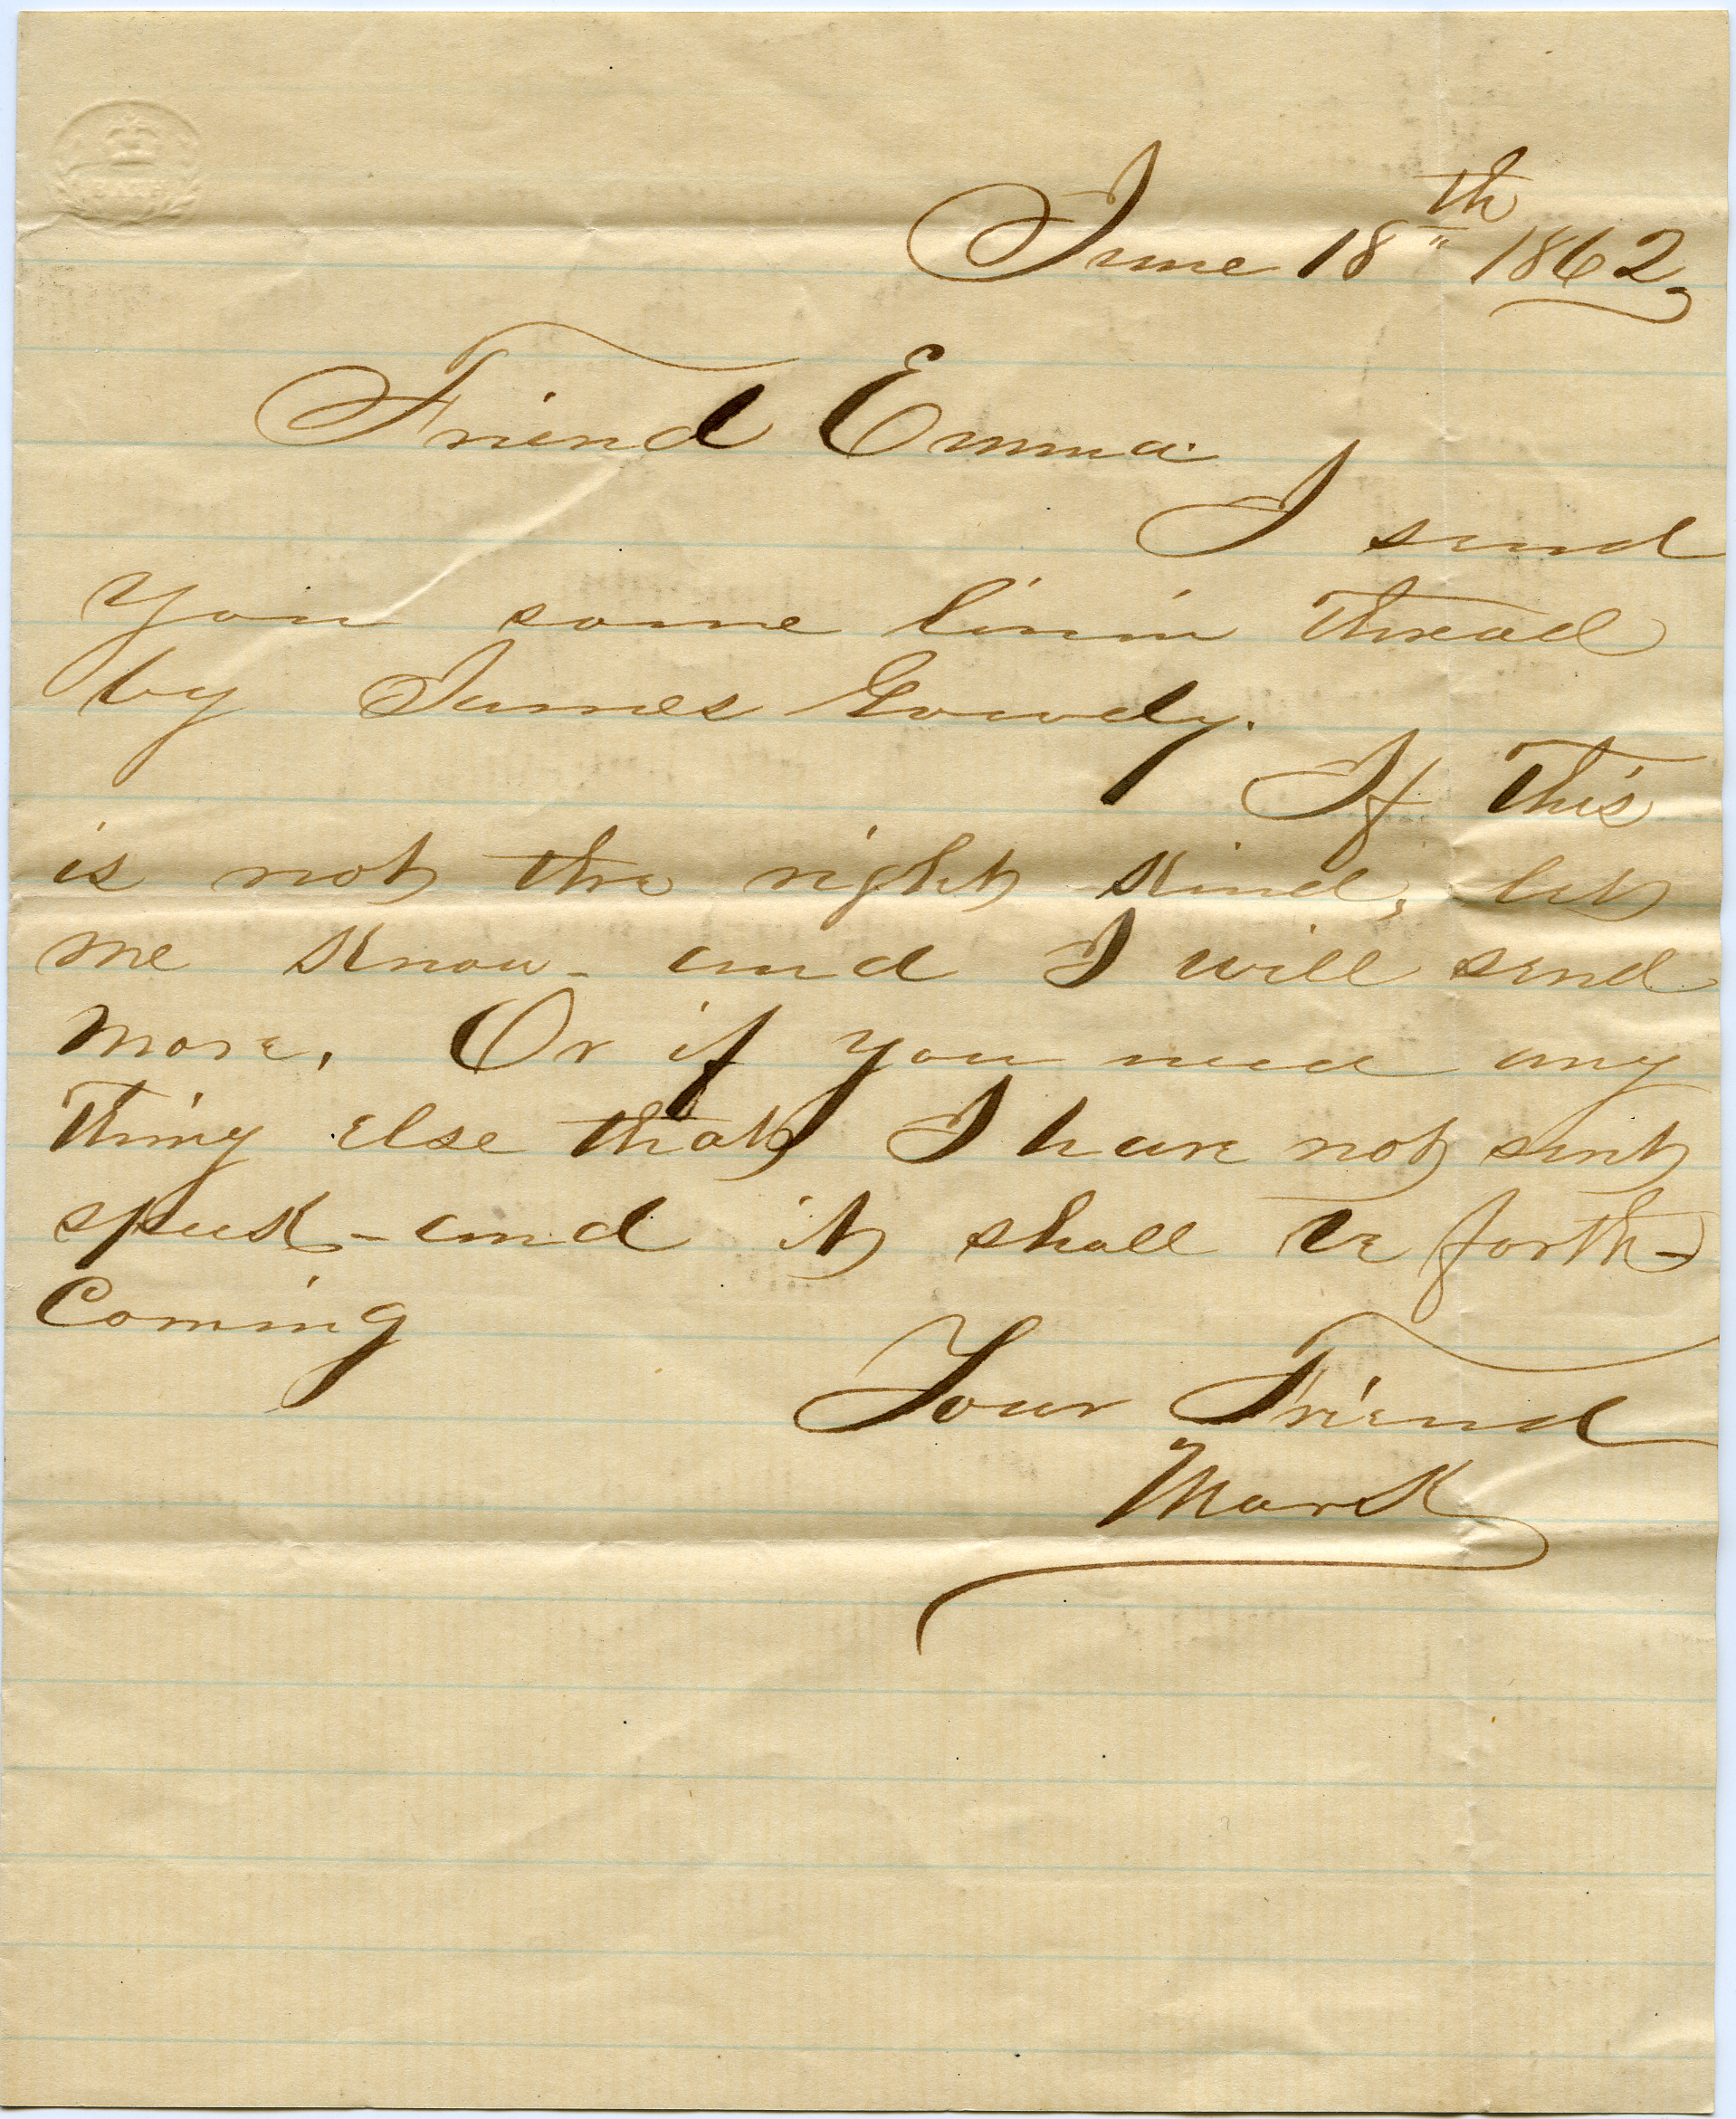 June 18th 1862,
Friend Emma.
I send
you some linin thread
by James Gowdy.
If this
is not the right kind, let
me know - and I will send
more. Or if you need any
thing else that I have not sent
speak - and it shall be forth-
Coming
Your Friend
Mark